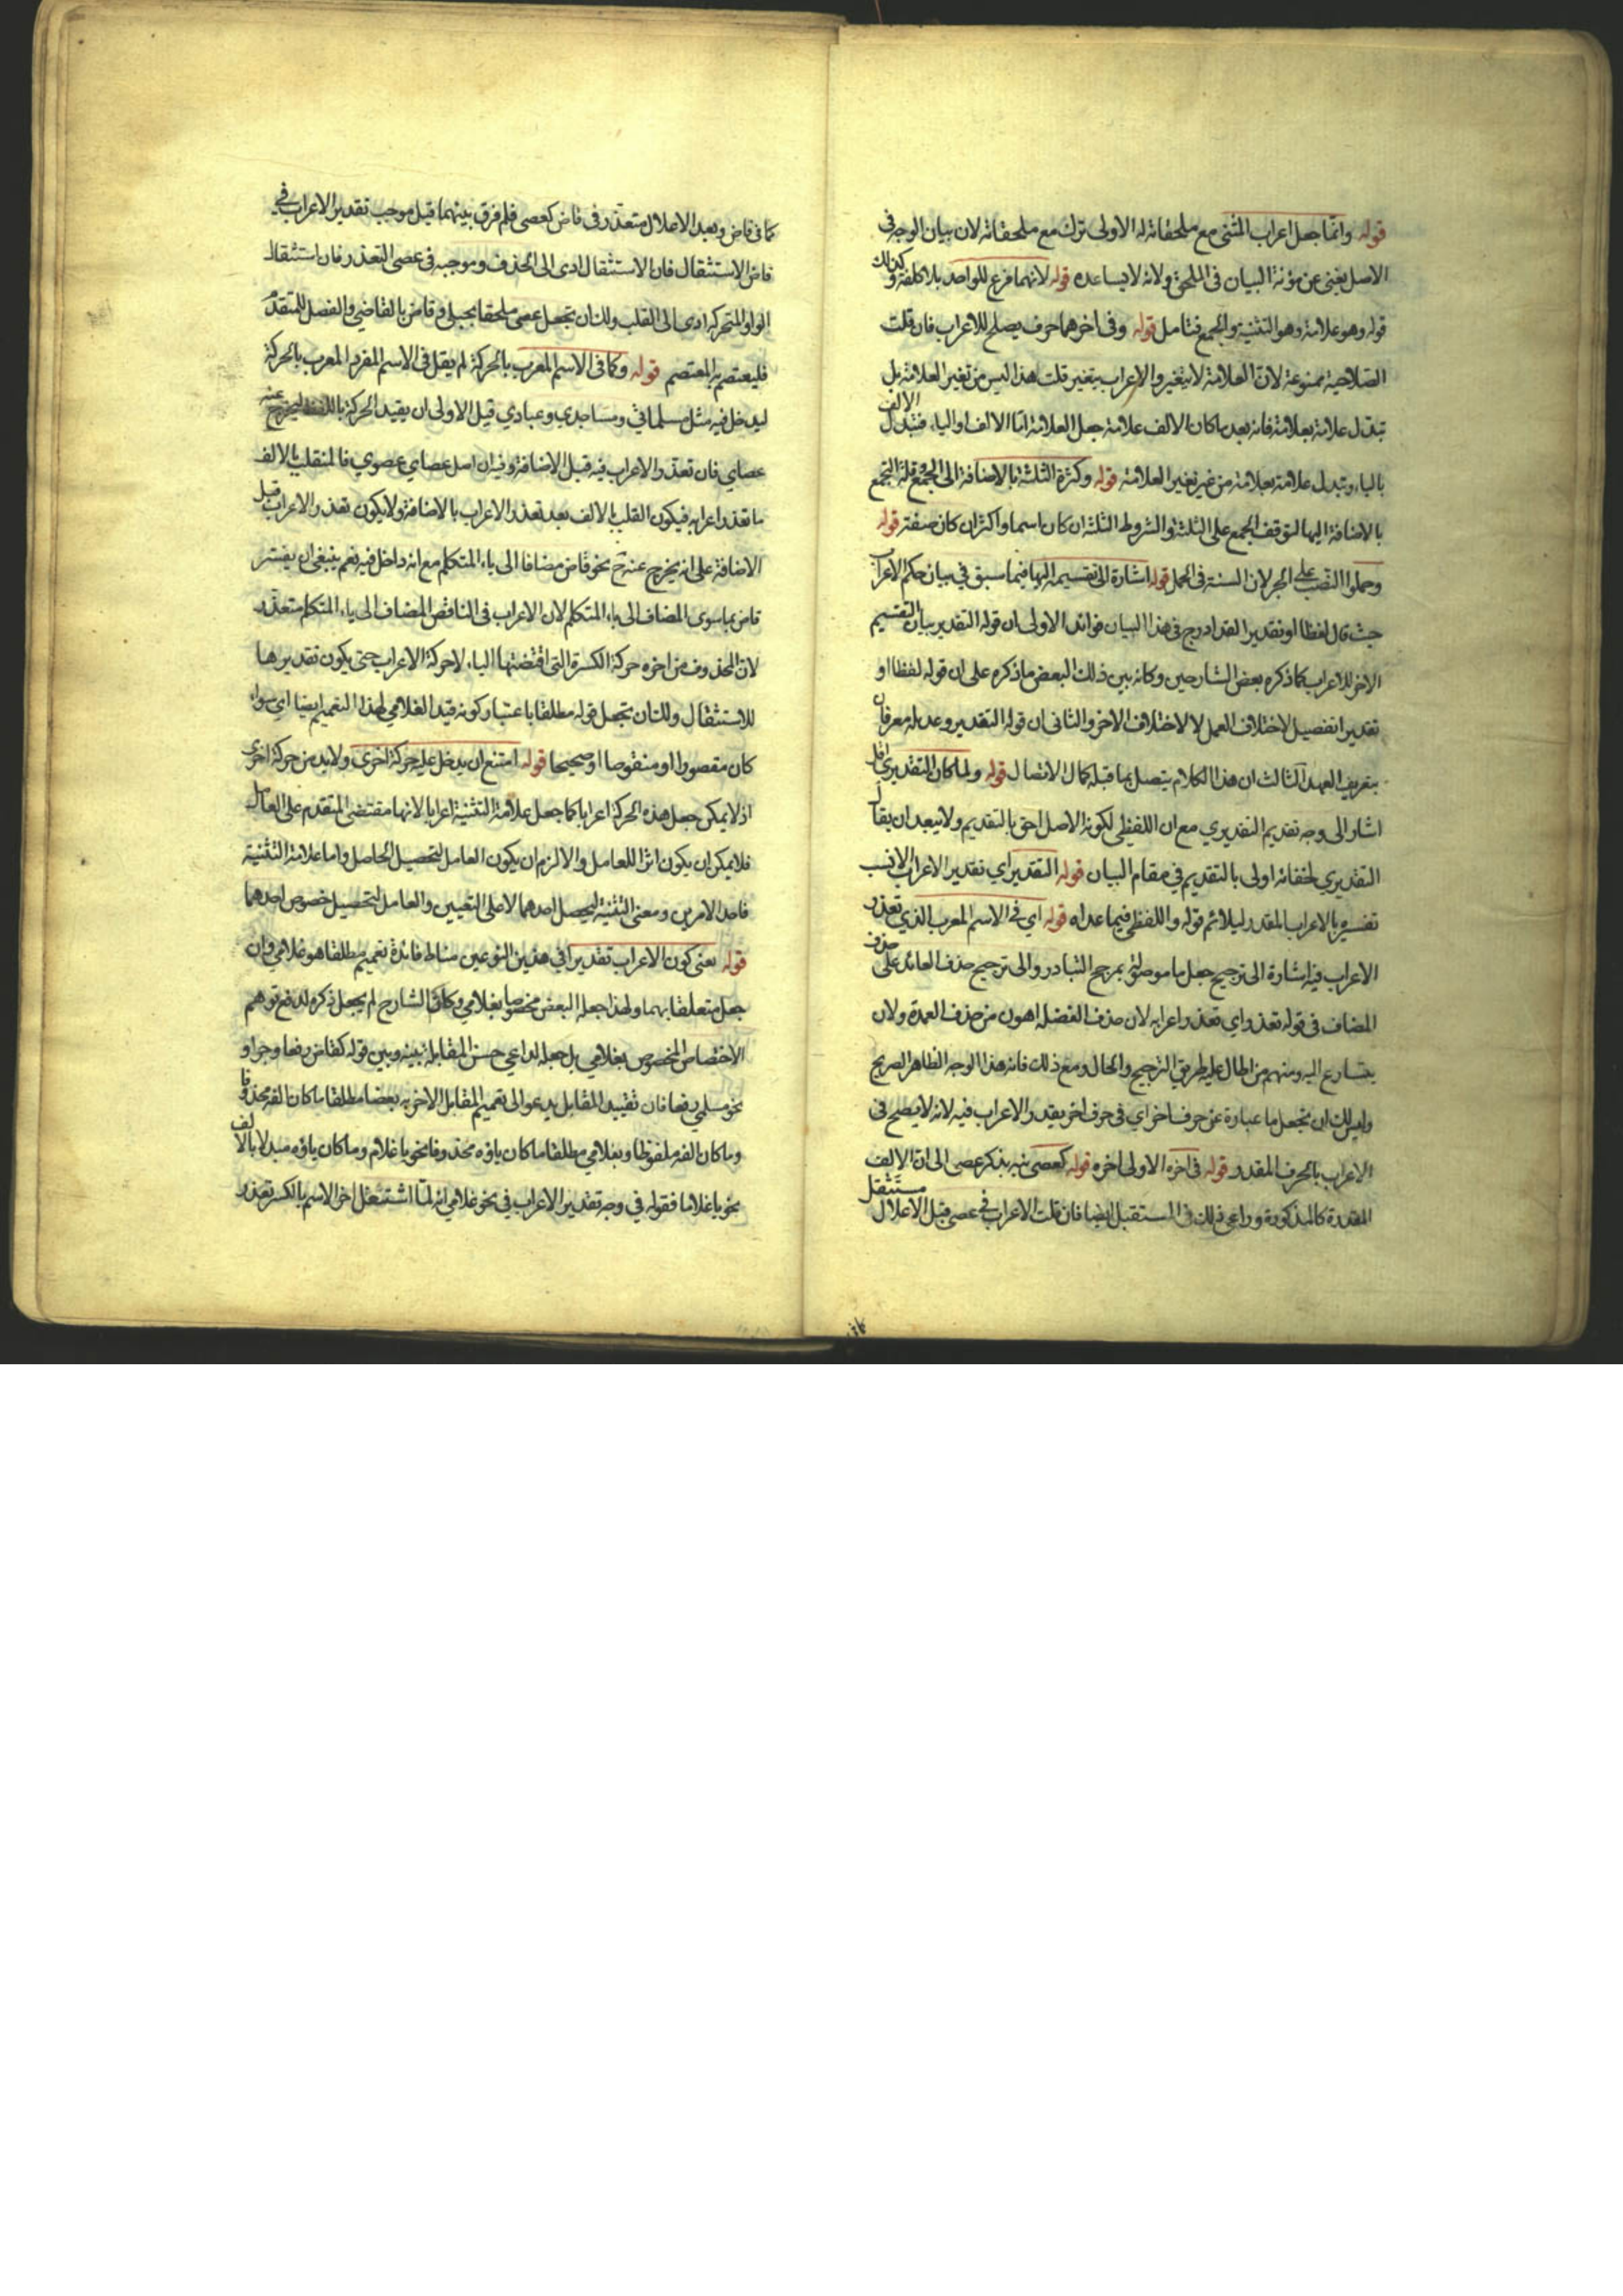 قوله وانما جعل اعراب المثنى مع ملحقاته له الاولى ترك مع ملحقاته لان بيان الوجه فى
الاصل يغنى عن مؤنة البيان فى الملحق ولانه لا يساعده قوله لانهما فرع للواحد بلا كلفة وكذلك
قوله وهو علامة وهو التثنية والجمع فتامل قوله وفى اخرهما حرف يصلح للاعراب فان قلت
الصلاحية ممنوعة لان العلامة لا يتغير والاعراب يتغير قلت هذا ليس من تغير العلامة بل
تبدل علامة بعلامة فانه بعد ما كان الالف علامة جعل العلامة اما الالف او الياء فتبدل الالف
بالياء وتبدل علامة بعلامة من غير تغير العلامة قوله وكثرة الثلثة بالاضافة الى الجمع وقلة الجمع
بالاضافة اليها لتوقف الجمع على الثلثة والشروط الثلثة ان كان اسما واكثر ان كان صفة قوله
وحملوا النصب على الجر لان السنة فى الحمل قوله اشارة الى تقسيمه اليها فيما سبق فى بيان حكم الاعراب
حيث قال لفظا او تقديرا لقد ادرج فى هذا البيان فوائد الاولى ان قوله التقدير بيان التقسيم
الاخر للاعراب كما ذكره بعض الشارحين وكانه بين ذلك البعض ما ذكره على ان قوله لفظا او
تقديرا تفصيل لاختلاف العمل لا لاختلاف الاخر والثانى ان قوله التقدير وعديله معرفان
بتعريف العهد الثالث ان هذا الكلام يتصل بما قبله كمال الاتصال قوله ولما كان التقديرى اقل
اشار الى وجه تقديم التقديري مع ان اللفظى لكونه الاصل احق بالتقديم ولا يبعد ان يقال
التقديري لخفائه اولى بالتقديم فى مقام البيان قوله التقدير اي تقدير الاعراب الانسب
تفسيره بالاعراب المقدر ليلائم قوله واللفظى فيما عداه قوله اي فى الاسم المعرب الذي تعذر
الاعراب فيه اشارة الى ترجيح جعل ما موصولة بمرجح التبادر والى ترجيح حذف العائد على حذف
المضاف فى قوله تعذر اي تعذر اعرابه لان حذف الفضلة اهون من حذف العمدة ولان
يتسارع اليه ومنهم من اطال عليه طريق الترجيح والحال ومع ذلك فاته هذا الوجه الظاهر الصريح
وليس لك ان تجعل ما عبارة عن حرف اخر اي فى حرف اخر يقدر الاعراب فيه لانه لا يصلح فى
الاعراب بالحرف المقدر قوله فى اخره الاولى اخره قوله كعصى نبه بذكر عصى الى ان الالف
المقدرة كالمذكورة وراعى ذلك فى المستقبل ايضا فان قلت الاعراب فى عصى قبل الاعلال مستثقل
كما فى قاض وبعد الاعلال متعذر فى قاض كعصى فلم فرق بينهما قيل موجب تقدير الاعراب فى
قاض الاستثقال فان الاستثقال ادى الى الحذف وموجبه فى عصى التعذر فان استثقال
الواو المتحركة ادى الى القلب ولك ان تجعل عصى ملحقا بحبلى وقاض بالقاضي والفضل للمتقدم
فليعتصم به المعتصم قوله وكما فى الاسم المعرب بالحركة لم يقل فى الاسم المفرد المعرب بالحركة
ليدخل فيه مثل مسلماتي ومساجدي وعبادي قيل الاولى ان يقيد الحركة ليخرج عنه
عصاي فان تعذر الاعراب فيه قبل الاضافة وفيه ان اصل عصاي عصوي فالمنقلب بالالف
ما تعذر اعرابه فيكون القلب بالالف بعد تعذر الاعراب بالاضافة ولا يكون تعذر الاعراب قبل
الاضافة على انه يخرج عنه ح نحو قاض مضافا الى ياء المتكلم مع انه داخل فيه نعم ينبغى ان يفسر
قاض بما سوى المضاف الى ياء المتكلم لان الاعراب فى الناقص المضاف الى ياء المتكلم متعذر
لان المحذوف من اخره حركة الكسرة التى اقتضتها الياء لا حركة الاعراب حتى يكون تقديرها
للاستثقال ولك ان تجعل قوله مطلقا باعتبار كونه قيد الغلامي لهذا التعميم ايضا اي سواء
كان مقصورا او منقوصا او صحيحا قوله امتنع ان يدخل عليه حركة اخرى ولا بد من حركة اخرى
اذ لا يمكن جعل هذه الحركة اعرابا كما جعل علامة التثنية اعرابا لانها مقتضى المتقدم على العامل
فلا يمكن ان يكون اثرا للعامل والا لزم ان يكون العامل لتحصيل الحاصل واما علامة التثنية
فاحد الامرين ومعنى التثنية ليحصل احدهما لا على التعيين والعامل لتحصيل خصوص احدهما
قوله يعنى كون الاعراب تقديرا فى هذين النوعين مناط فائدة تعميم مطلقا هو غلامي وان
جعل متعلقا بهما ولهذا جعله البعض مخصوصا بغلامي وكان الشارح لم يجعل ذكره لدفع توهم
الاختصاص المخصوص بغلامي بل جعله لداعي حسن المقابلة بينه وبين قوله كقاض رفعا وجرا و
نحو مسلمي رفعا فان تقييد المقابل يدعو الى تعميم المقابل الاخر به بعضا مطلقا ما كان الفه محذوفا
وما كان الفه ملفوظا وبغلامي مطلقا ما كان ياؤه محذوفا نحو يا غلام وما كان ياؤه مبدلا بالالف
نحو يا غلاما فقوله فى وجه تقدير الاعراب فى نحو غلامي انه لما اشتغل اخر الاسم بالكسر تعذر